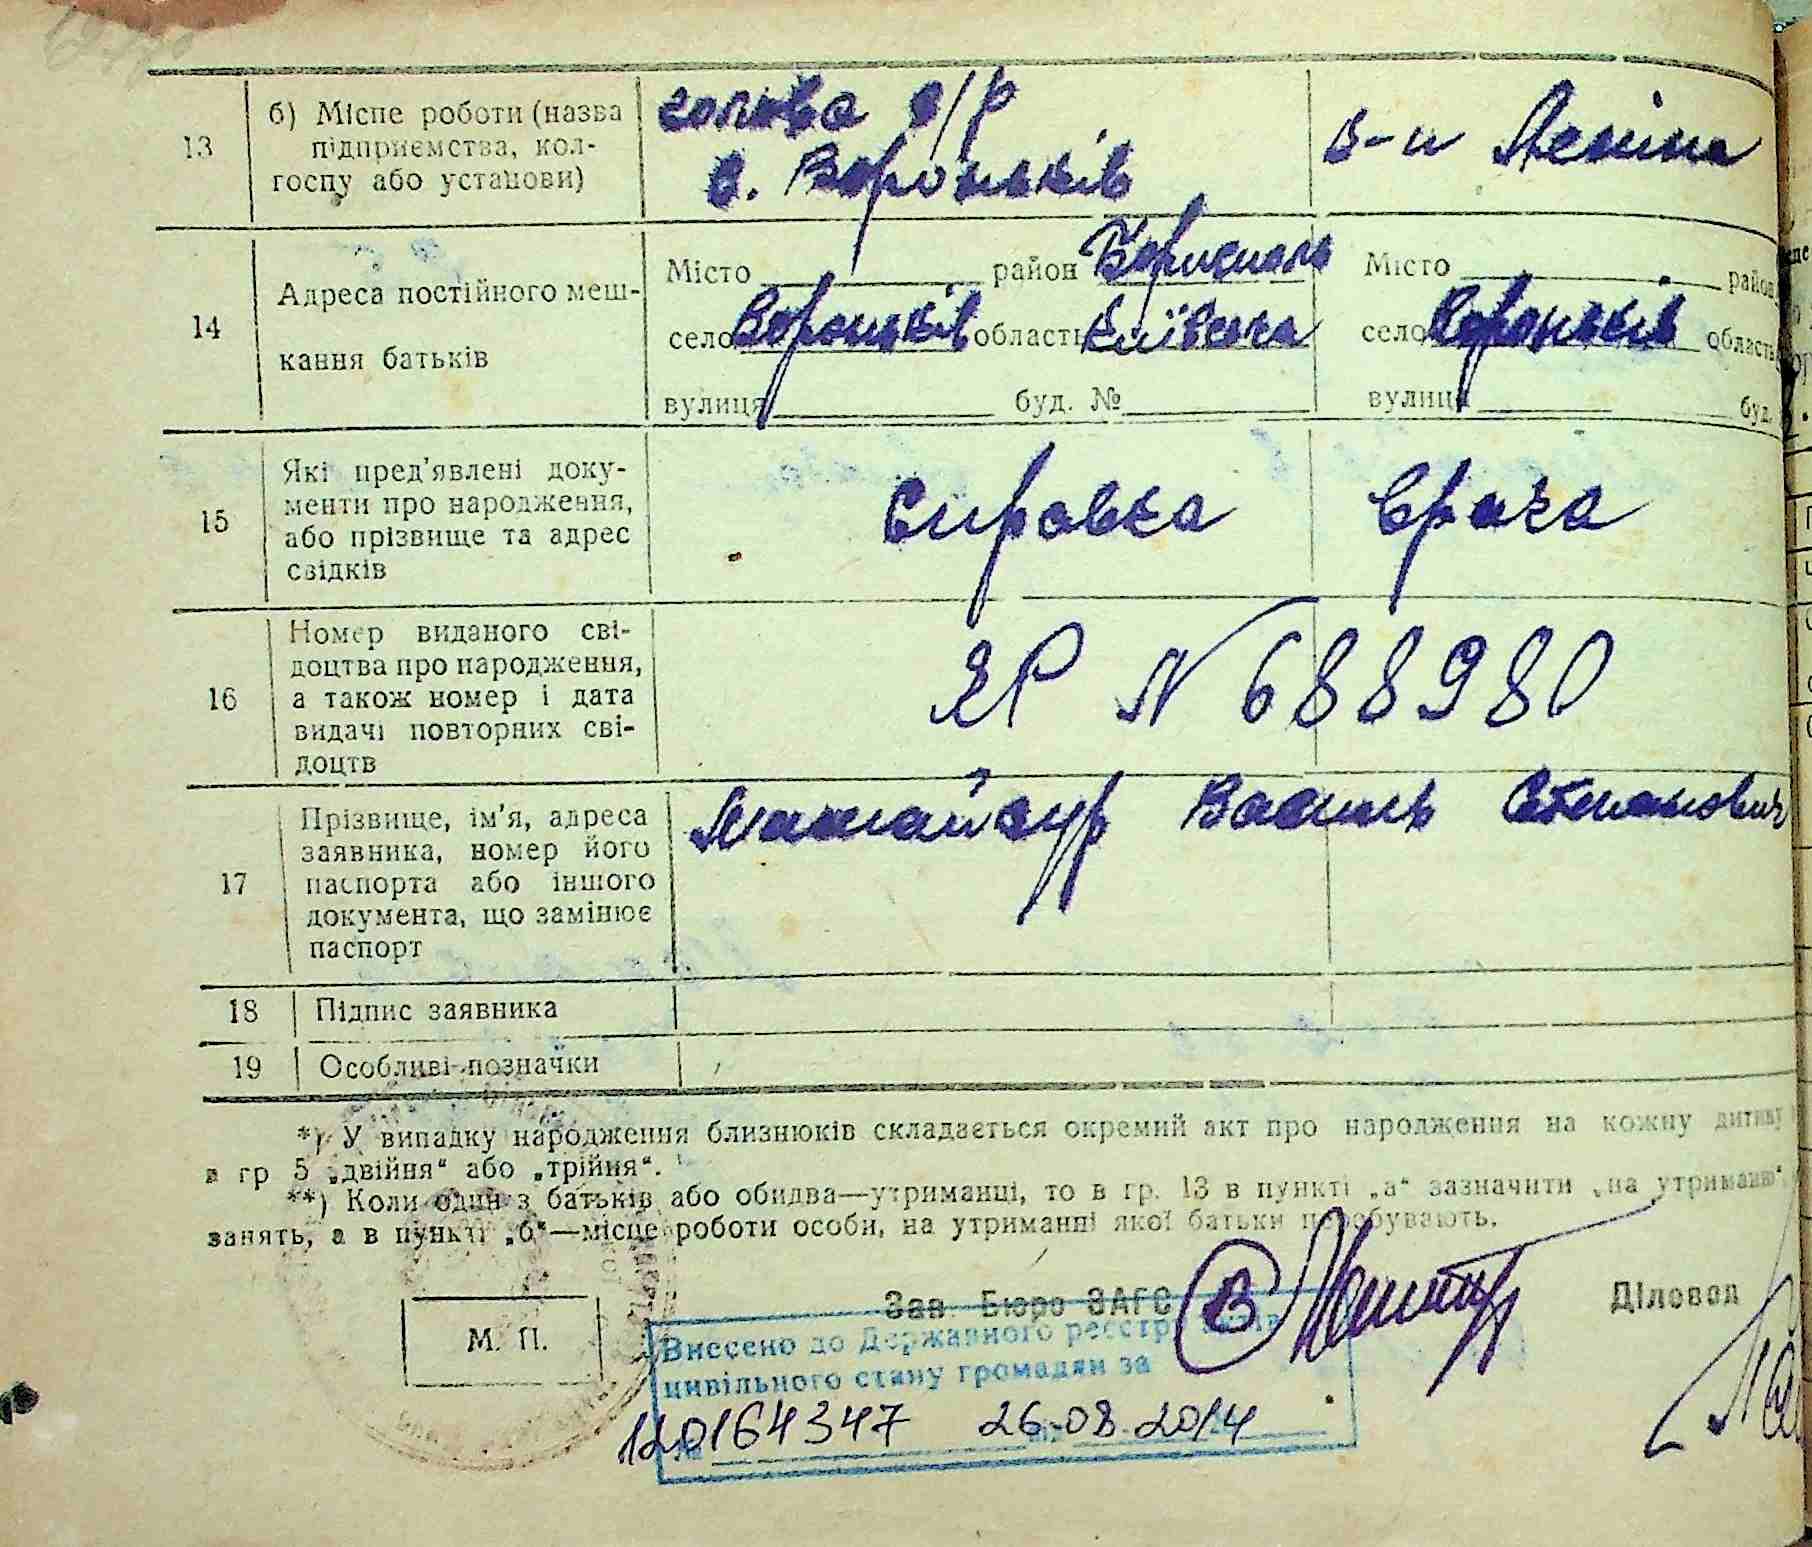 13
б) Місце роботи (назва
підприємства, кол-
госпу або установи)
голова с/р
с. Вороньків
к-п Леніна
14
Адреса постійного меш-
кання батьків
Місто район Бориспол
село Вороньків область Київська
вулиця буд. №
Місто район
село Вороньків область
вулиця буд.
15
Які пред'явлені доку-
менти про народження,
або прізвище та адрес
свідків
Справка врача
16
Номер виданого сві-
доцтва про народження,
а також номер і дата
видачі повторних сві-
доцтв
ЯР N 688980
17
Прізвище, ім'я, адреса
заявника, номер його
паспорта або іншого
документа, що замінює
паспорт
Василь Степанович
18
Підпис заявника
19
Особливі позначки
*) У випадку народження близнюків складається окремий акт про народження на кожну дитину
в гр 5 „двійня“ або „трійня“.
**) Коли один з батьків або обидва—утриманці, то в гр. 13 в пункті „а“ зазначити „на утриманні“,
занять, а в пункті „б“—місце роботи особи, на утриманні якої батьки перебувають.
Зав Бюро ЗАГС
Діловод
М. П.
Внесено до Державного реєстру актів
цивільного стану громадян за
№ 120164347 26.08.2014